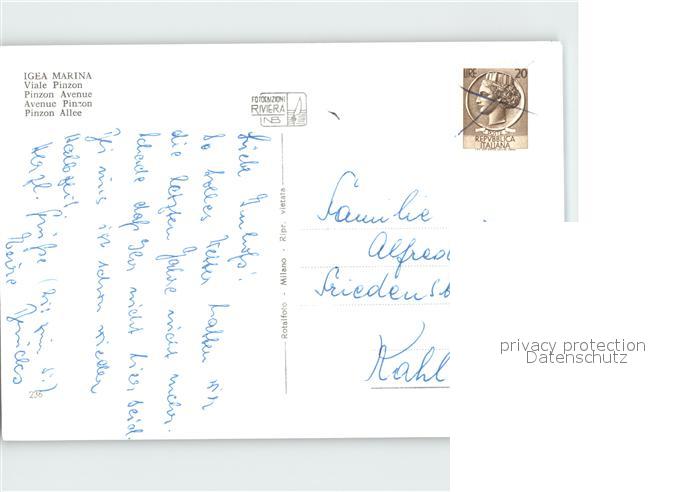 IGEA MARINA
Viale Pinzon
Pinzon Avenue
Avenue Pinzon
Pinzon Allee
FOTOEDIZIONI
RIVIERA
NB
LIRE 20
REPVBBLICA
ITALIANA
Liebe
So tolles Wetter hatten wir
die letzten Jahre nicht mehr.
Schade daß Ihr nicht hier seid.
Bei uns ist schon wieder
Halbzeit.
Herzl. Grüße
Rotalfoto - Milano - Ripr. vietata
Familie
Alfred
Friedenst
Kahl
236
privacy protection
Datenschutz